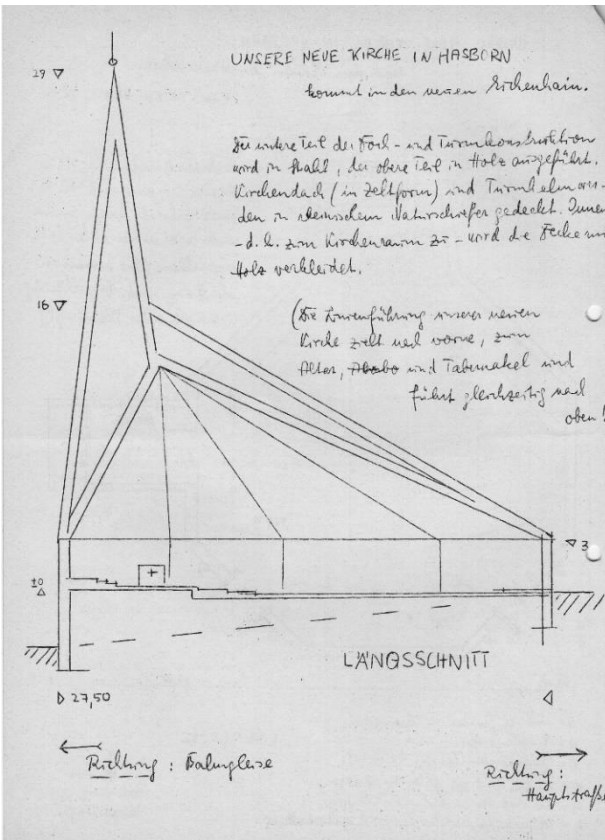 UNSERE NEUE KIRCHE IN HASBORN
kommt in den neuen Eichenhain.
29
Der untere Teil der Dach- und Turmkonstruktion
wird in Stahl, der obere Teil in Holz ausgeführt.
Kirchendach (in Zeltform) und Turmhelm wer-
den in rheinischem Naturschiefer gedeckt. Innen
- d.h. zum Kirchenraum zu - wird die Decke
Holz verkleidet.
16
(Die Linienführung unserer neuen
Kirche zielt nach vorne, zum
Altar, und Tabernakel und
führt gleichzeitig nach
oben!
3
10
LÄNGSSCHNITT
27,50
Richtung: Bahngleise
Richtung:
Hauptstraße